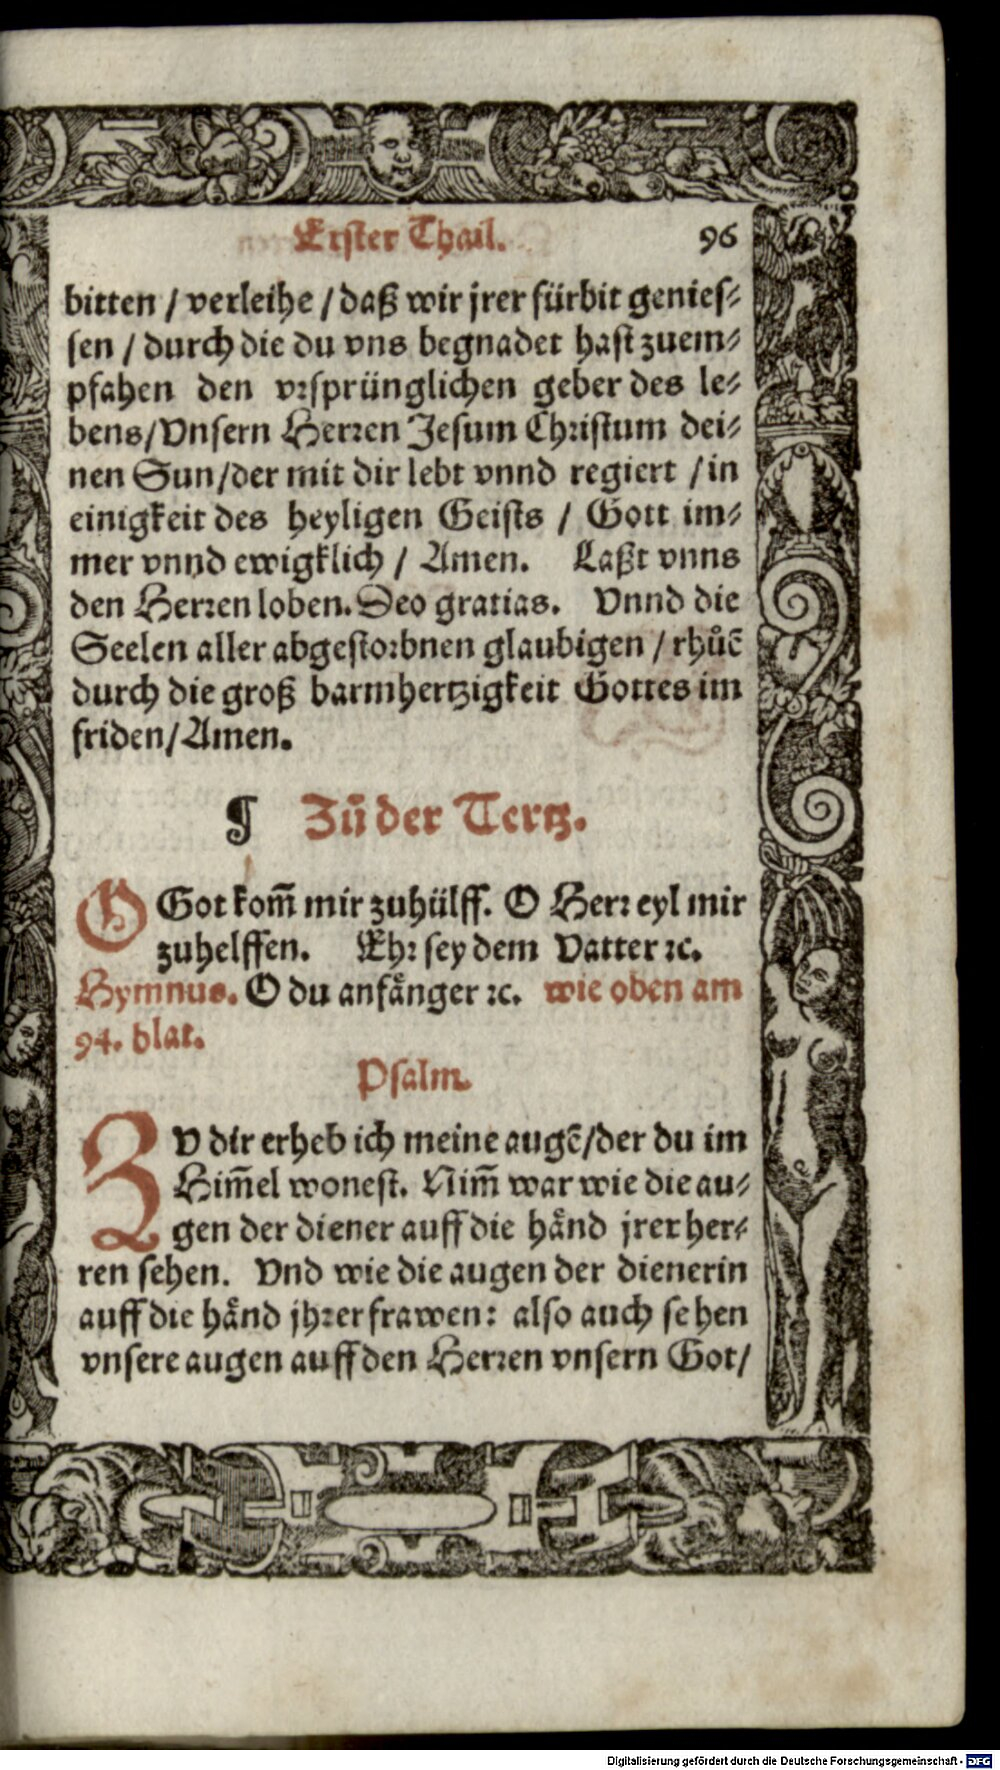 Erster Thail. 96
bitten / verleihe / daß wir jrer fürbit genies⸗
sen / durch die du vns begnadet hast zuem⸗
pfahen den vrsprünglichen geber des le⸗
bens/Vnsern Herren Jesum Christum dei⸗
nen Sun/der mit dir lebt vnnd regiert / in
einigkeit des heyligen Geists / Gott im⸗
mer vnnd ewigklich / Amen. Laßt vnns
den Herren loben. Deo gratias. Vnnd die
Seelen aller abgestorbnen glaubigen / rhůē
durch die groß barmhertzigkeit Gottes im
friden/Amen.
¶ Zů der Tertz.
O Got kom̄ mir zuhülff. O Herr eyl mir
zuhelffen. Ehr sey dem Vatter ꝛc.
Hymnus. O du anfånger ꝛc. wie oben am
94. blat.
Psalm.
ZV dir erheb ich meine augē/der du im
Him̄el wonest. Nim̄ war wie die au⸗
gen der diener auff die hånd jrer her⸗
ren sehen. Vnd wie die augen der dienerin
auff die hånd jhrer frawen: also auch sehen
vnsere augen auff den Herren vnsern Got/
Digitalisierung gefördert durch die Deutsche Forschungsgemeinschaft - DFG